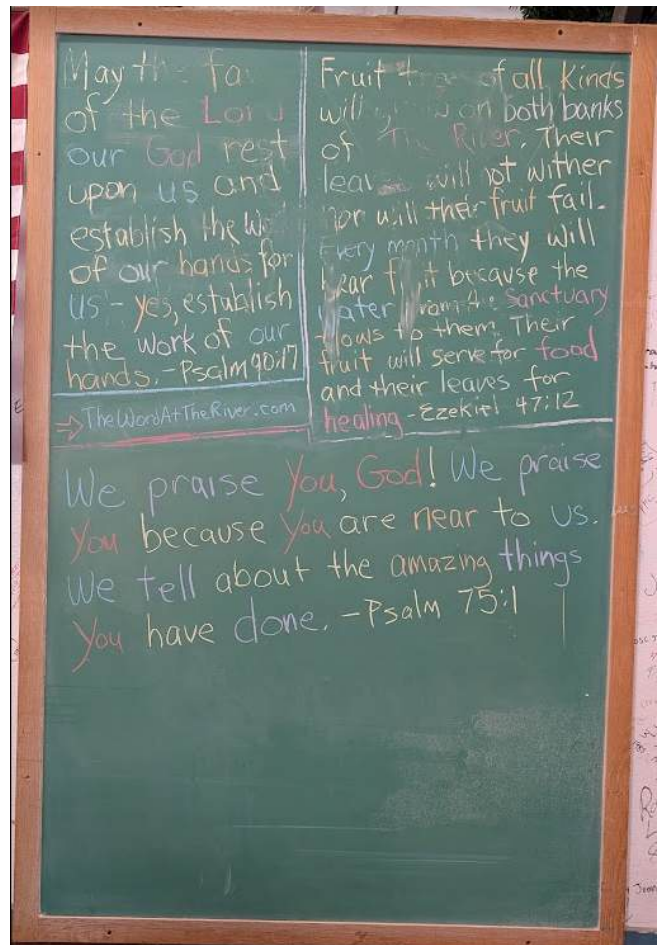 May the fa
of the Lord
our God rest
upon us and
establish the wo
of our hands for
us - yes, establish
the work of our
hands. - Psalm 90:17
→ TheWordAtTheRiver.com
Fruit trees of all kinds
will grow on both banks
of The River. Their
leaves will not wither
nor will their fruit fail.
Every month they will
bear fruit because the
water from the Sanctuary
flows to them. Their
fruit will serve for food
and their leaves for
healing - Ezekiel 47:12
We praise You, God! We praise
You because You are near to us.
We tell about the amazing things
You have done. - Psalm 75:1